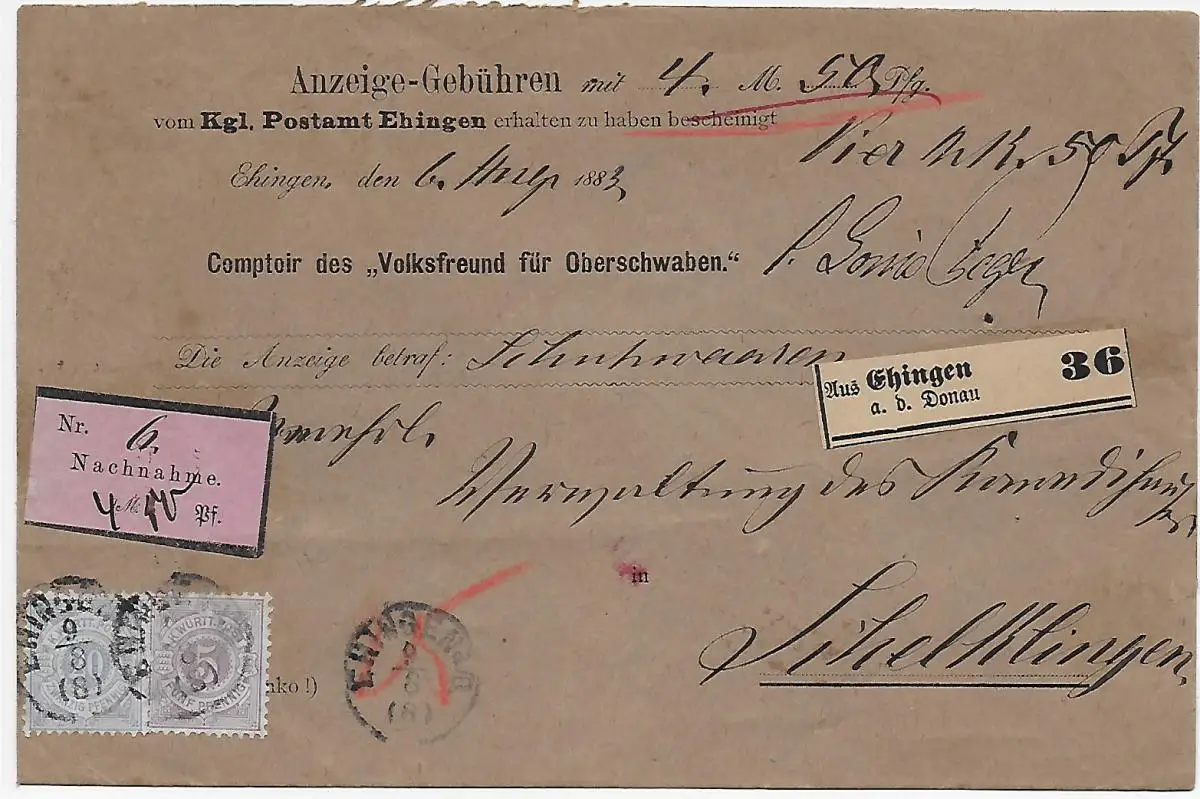 Anzeige-Gebühren mit 4. M. 50 Pfg.
vom Kgl. Postamt Ehingen erhalten zu haben bescheinigt
Vier Mk. 50 Pf.
Ehingen, den 6. 1883
Comptoir des „Volksfreund für Oberschwaben."
Die Anzeige betraf: Schuhwaaren
Aus Ehingen 36
a. d. Donau
Nr. 6.
Nachnahme.
4 M. 50 Pf.
Verwaltung des
in
Schelklingen
EHINGEN
9
8
(8)
K. WÜRTT. POST
5
FÜNF PFENNIG
nko!)
EHINGEN
8
(8)